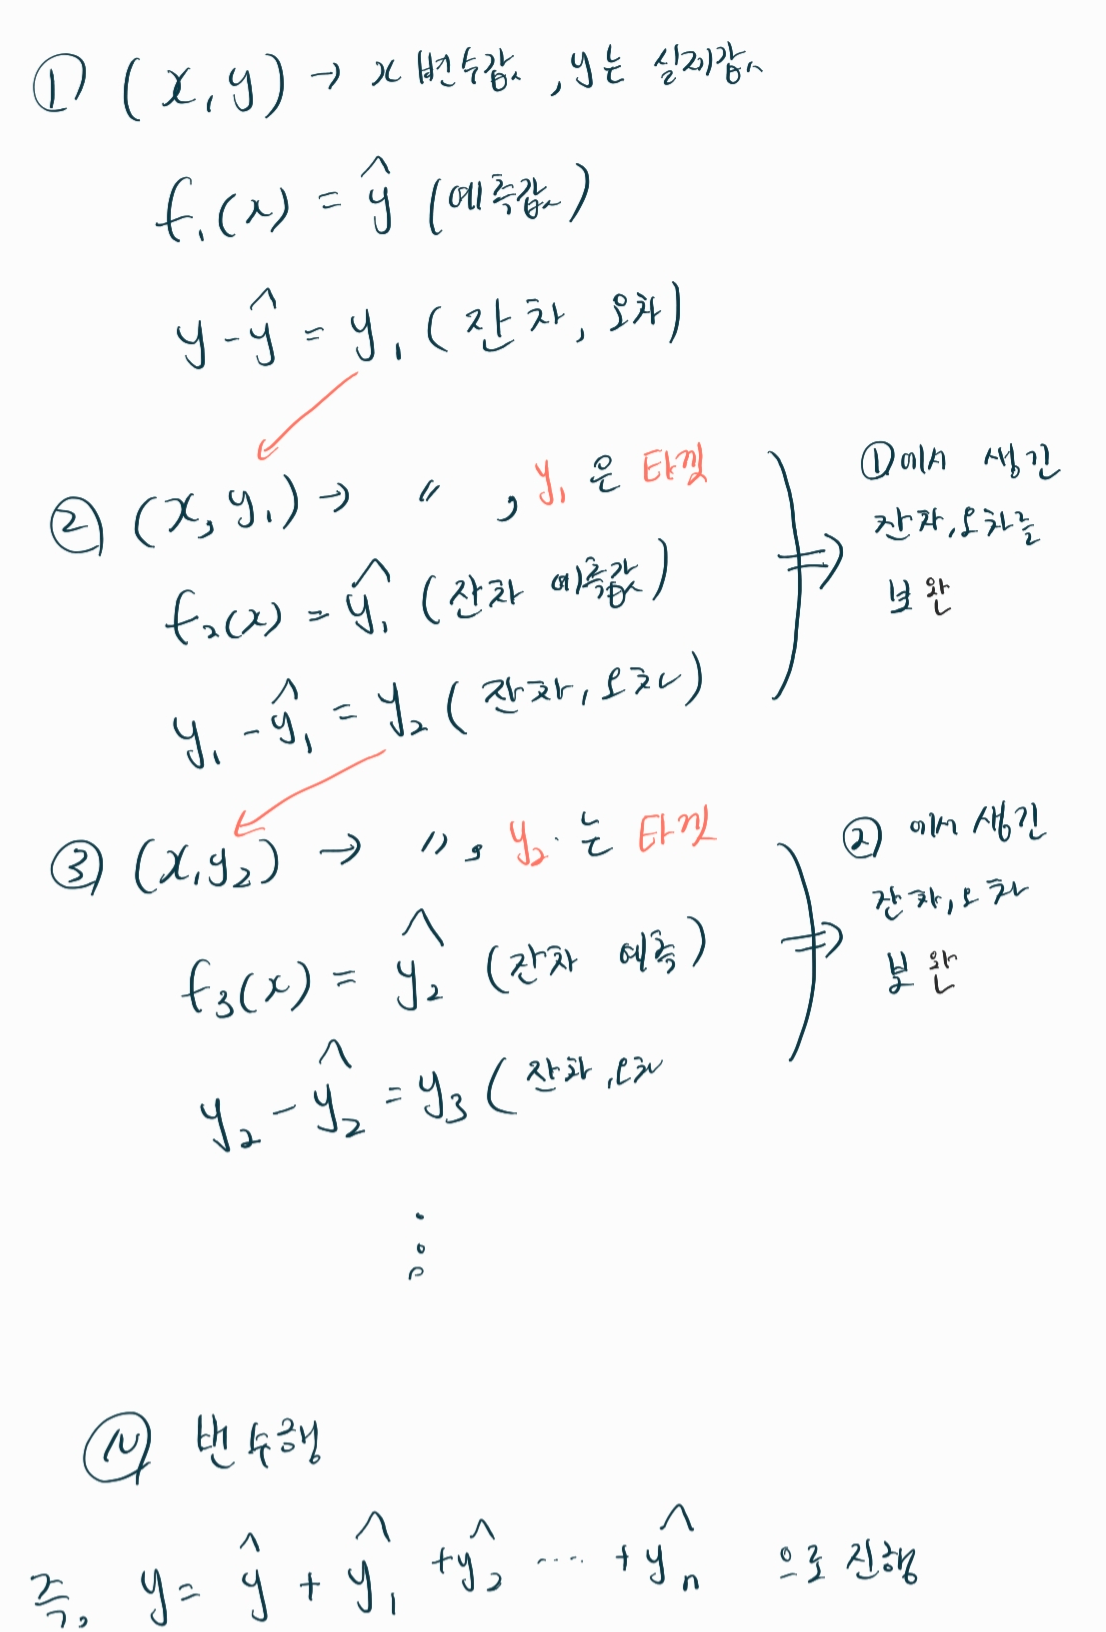 ① (x, y) → x 변수값, y는 실제값
f₁(x) = ŷ (예측값)
y - ŷ = y₁ (잔차, 오차)
② (x, y₁) → 〃 , y₁은 타깃
f₂(x) = ŷ₁ (잔차 예측값)
y₁ - ŷ₁ = y₂ (잔차, 오차)
①에서 생긴
잔차, 오차를
보완
③ (x, y₂) → 〃 , y₂는 타깃
f₃(x) = ŷ₂ (잔차 예측)
y₂ - ŷ₂ = y₃ (잔차, 오차
② 에서 생긴
잔차, 오차
보완
⋮
Ⓝ 번 수행
즉, y = ŷ + ŷ₁ + ŷ₂ ···· + ŷₙ 으로 진행